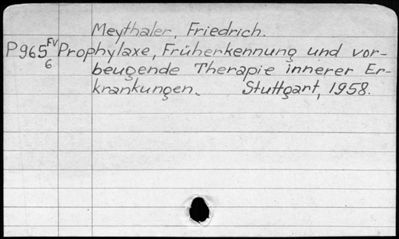 Meythaler, Friedrich.
P965 FV Prophylaxe, Früherkennung und vor-
6 beugende Therapie innerer Er-
krankungen. Stuttgart, 1958.